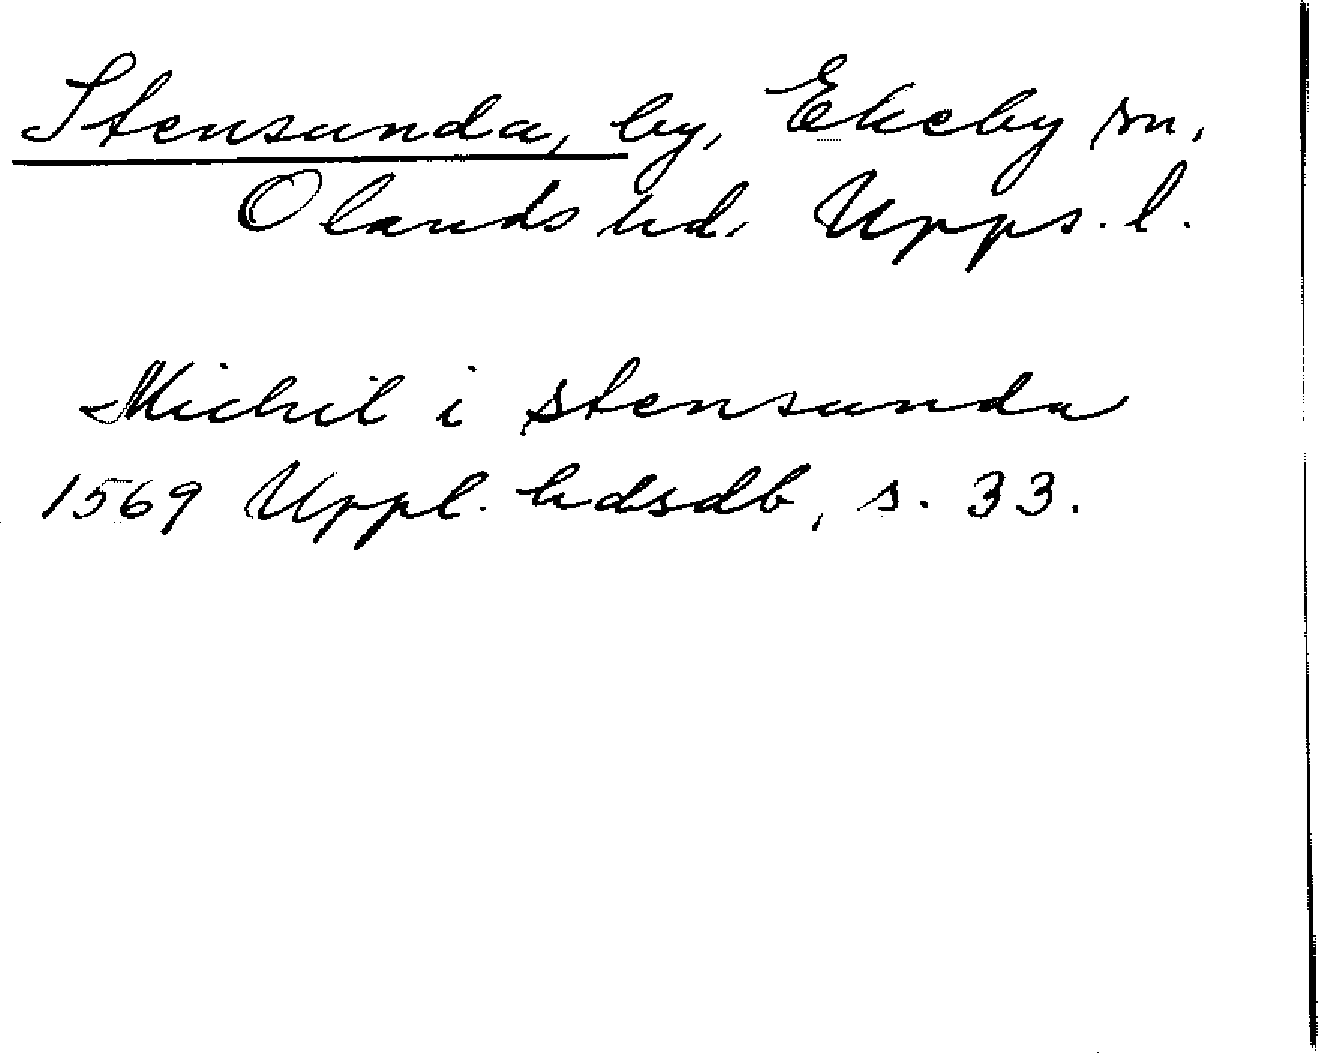 Stensunda, by, Ekeby sn,
Olands hd, Upps. l.
Michil i stensunda
1569 Uppl. hdsdb, s. 33.